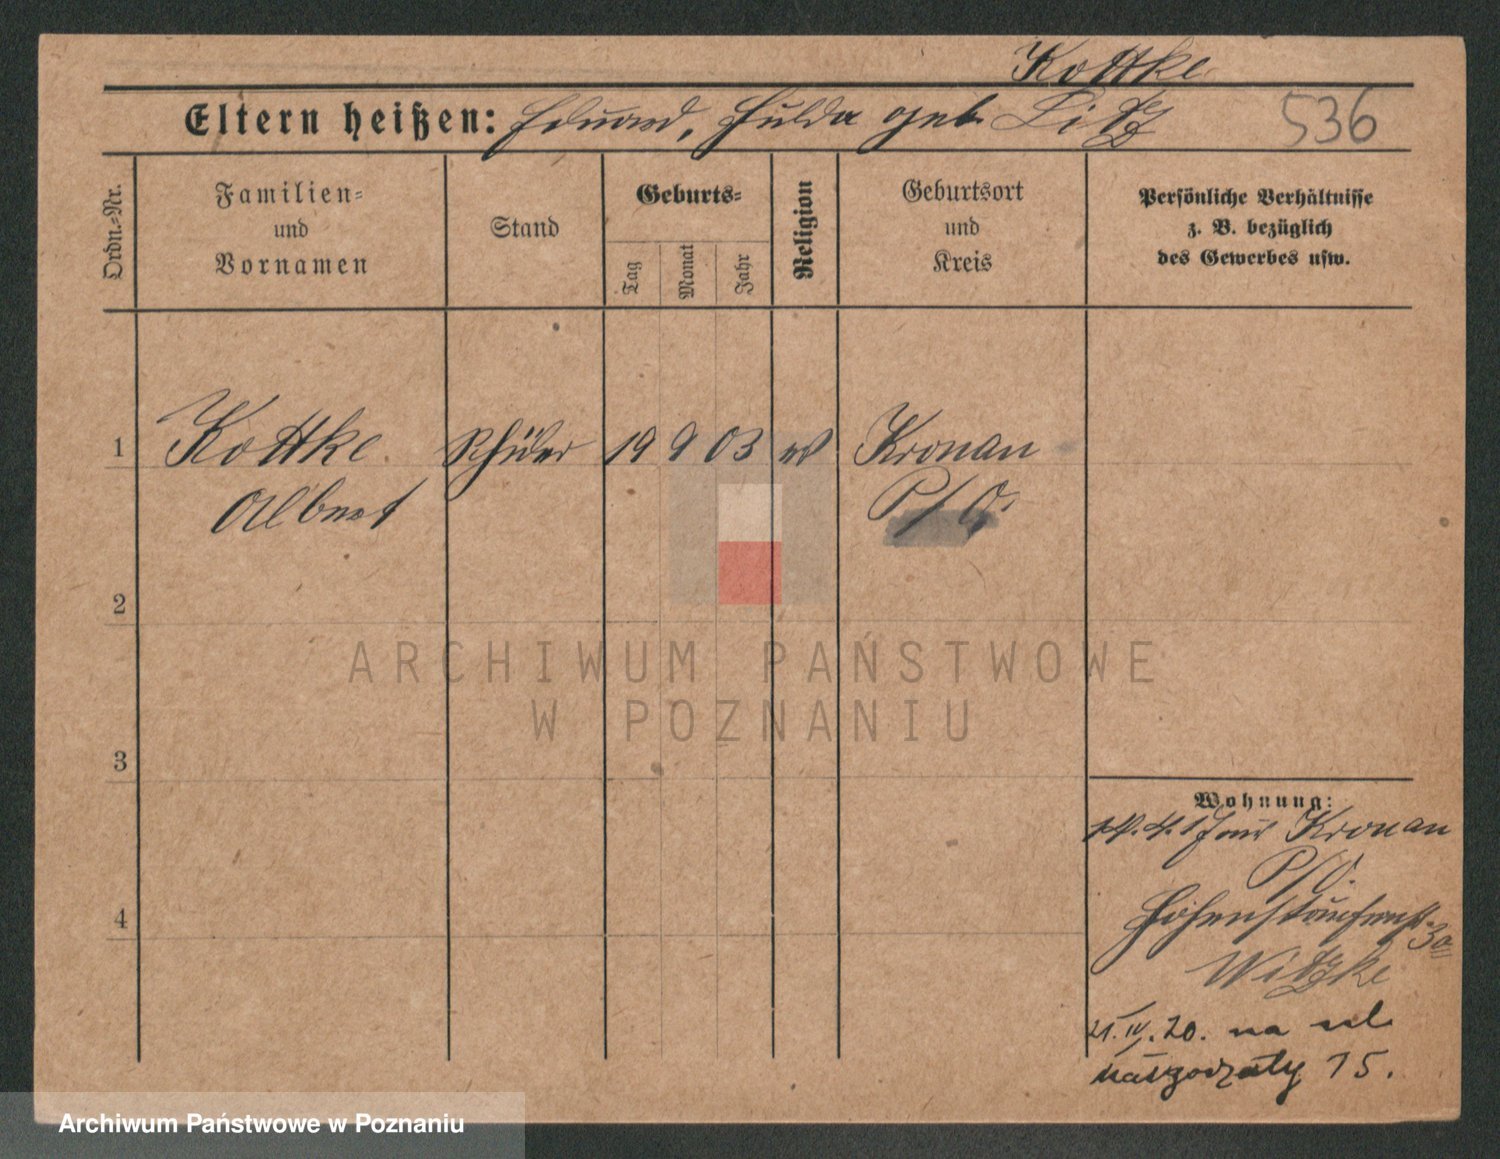 Kottke
Eltern heißen: Eduard, Hulda geb. Litz
536
Ordn.-Nr.
Familien-
und
Vornamen
Stand
Geburts-
Tag
Monat
Jahr
Religion
Geburtsort
und
Kreis
Persönliche Verhältnisse
z. B. bezüglich
des Gewerbes usw.
1 Kottke Schüler 19 9 03 ev Kronau
Albert P/O.
2
ARCHIWUM PAŃSTWOWE
W POZNANIU
3
Wohnung:
Kronau
P/O.
4
Hohenstaufenstr. 30
Witzke
21.IV.20. na ul.
15.
Archiwum Państwowe w Poznaniu